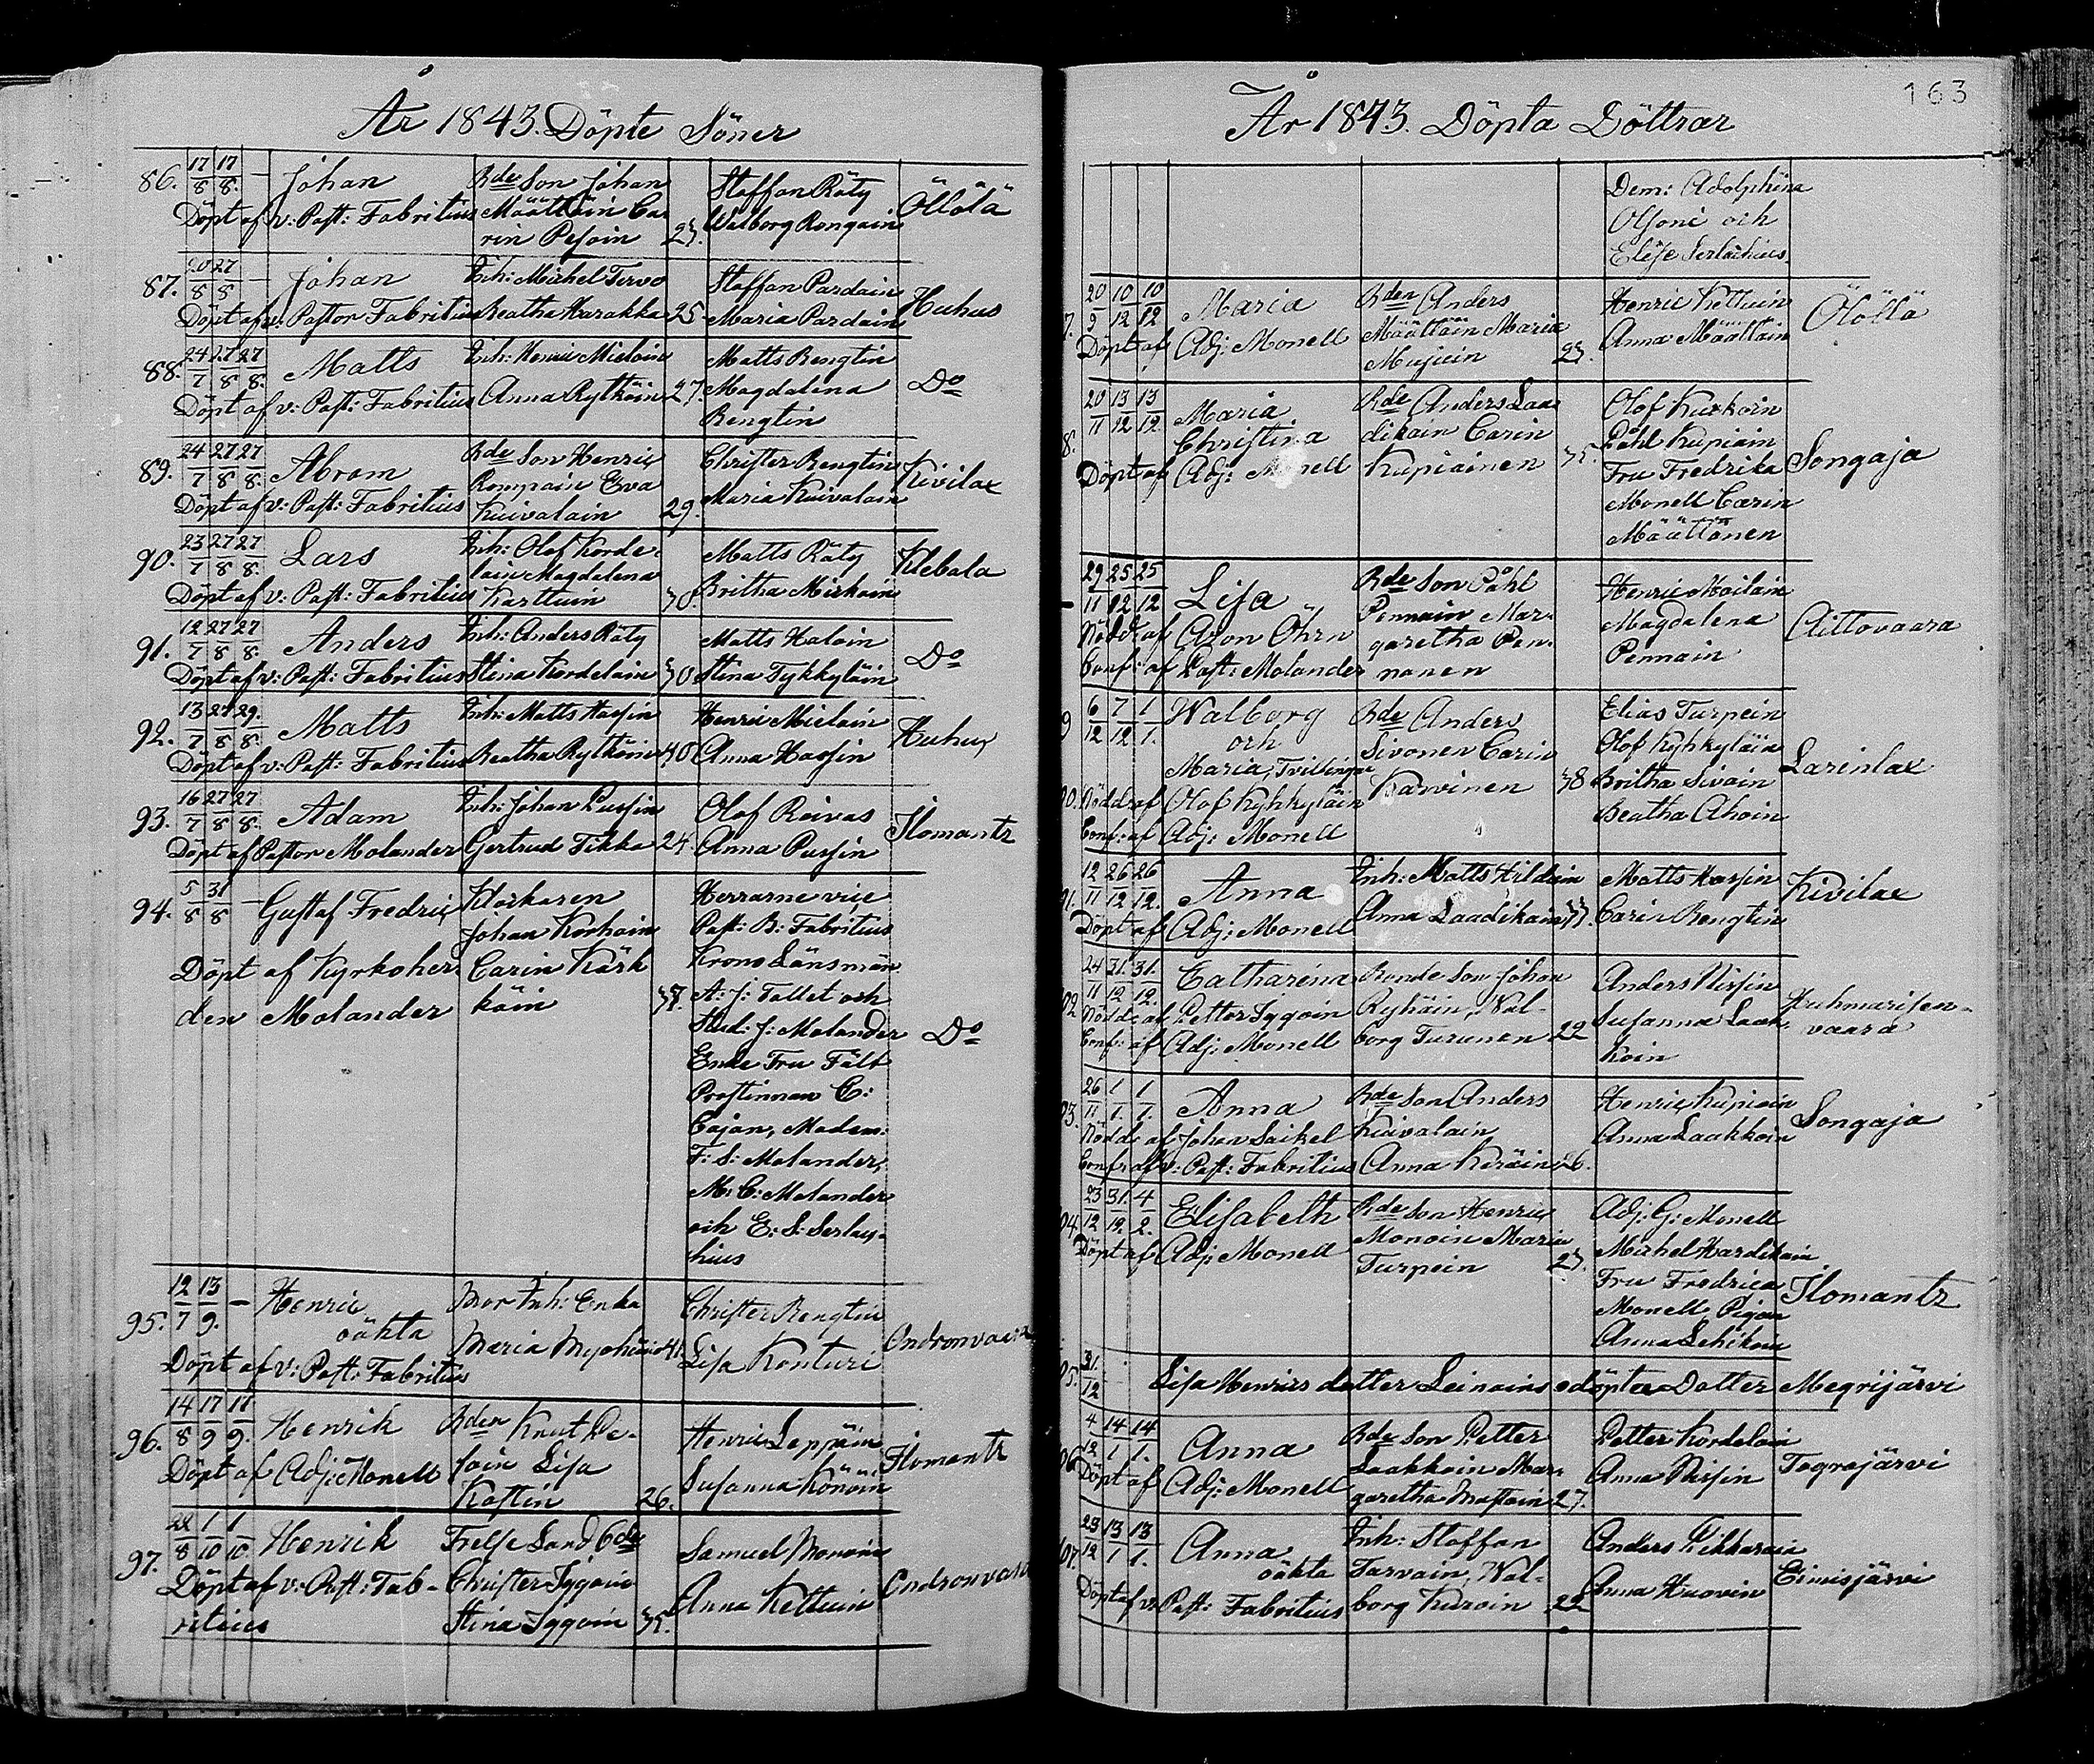 År 1843. Döpte Söner
86. 17/8 17/8. — Johan Rde Son Johan Staffan Räty Öllölä
Döpt af v: Past: Fabritius Määttäin Ca- Walborg Rongain
rin Pesoin 23.
87. 20/8 27/8 — Johan Inh: Michel Tervo Staffan Pardain Huhus
Döpt af v: Pastor Fabritius Beatha Harakka 25. Maria Pardain
88. 24/7 27/8 27/8. Matts Inh: Henric Mieloin Matts Bengtin Do
Döpt af v: Past: Fabritius Anna Rytköin 27. Magdalena
Bengtin
89. 24/7 27/8 27/8. Abram Rde Son Henric Christer Bengtin Kivilax
Rompain Eva Maria Kuivalain
Döpt af v: Past: Fabritius Kuivalain 29.
90. 23/7 27/8 27/8. Lars Inh: Olof Korde- Matts Räty Klebala
lain Magdalena Britha Miskain
Döpt af v: Past: Fabritius Karttuin 30.
91. 12/7 27/8 27/8. Anders Inh: Anders Räty Matts Haloin Do
Döpt af v: Past: Fabritius Stina Kordelain 30 Stina Tykkyläin
92. 13/7 27/8 29/8. Matts Inh: Matts Hassin Henric Mieloin Huhus
Döpt af v: Past: Fabritius Beatha Rytköin 40 Anna Hassin
93. 16/7 27/8 27/8. Adam Inh: Johan Pussin Olof Reivas Ilomantz
Döpt af Pastor Molander Gertrud Tikka 24. Anna Pussin
94. 5/8 31/8 — Gustaf Fredric Klockaren Herrarne vice
Johan Korhoin Past: B: Fabritius
Döpt af Kyrkoher- Carin Kärk- Krono Länsmän
den Molander köin 38. A: J: Tallet och
Stud: J: Molander Do
Enke Fru Fält
Prostinnan C:
Cajan, Madem:
F: S: Molander,
M: C: Molander
och E: S: Serlac-
hius
95. 12/7 13/9. — Henric Mor Inh: Enka Christer Bengtin
oäkta Maria Myöhäin 41. Lisa Konturi Ondronvaara
Döpt af v: Past: Fabritius
96. 14/8 17/9 17/9. Henrik Rden Knut Pe- Henric Leppäin Ilomantz
Döpt af Adj: Monell soin Lisa Susanna Könöin
Kostin 26.
97. 22/8 1/10 1/10. Henrik Frelse Land Bde Samuel Monoin Ondronvaara
Döpt af v: Past: Fab- Christer Iggoin Anna Kettuin
ritius Stina Iggoin 35.
163
År 1843. Döpta Döttrar
Dem: Adolphina
Olsoni och
Elise Serlachius
7. 20/9 10/12 10/12 Maria Rden Anders Henric Kettuin Ölöllä
Döpt af Adj: Monell Määttäin Maria Anna Määttäin
Mujuin 23.
8. 20/11 13/12 13/12. Maria Rde Anders Laa- Olof Kuxkoin
Christina dikain Carin Påhl Kupiain
Döpt af Adj: Monell Kupiainen 35. Fru Fredrika Songaja
Monell Carin
Määttänen
29/11 25/12 25/12 Lisa Rde Son Påhl Henric Moilain
Nöddt af Aron Öhrn Pennain Mar- Magdalena Aittovaara
Conf: af Past: Molander garetha Pen- Pennain
nanen
6/12 7/12 1/1. Walborg Rde Anders Elias Turpein
och Sivonen Carin Olof Kykkyläin
Maria, Tvillingar Karvinen 38 Britha Sivoin Larinlax
Nödd: af Olof Kykkyläin Beatha Ahoin
Conf: af Adj: Monell
12/11 26/12 26/12. Anna Inh: Matts Hildain Matts Hassin Kivilax
Döpt af Adj: Monell Anna Laadikain 33. Carin Bengtin
24/11 31/12 31/12. Catharina Bonde Son Johan Anders Nissin
Nödd: af Petter Iggoin Ryhäin, Wal- Susanna Laak- Huhmarisen-
Conf: af Adj: Monell borg Turunen 22 koin vaara
26/11 1/1. 1/1. Anna Rde Son Anders Henric Kupiain Songaja
Nödd: af Johan Saikel Kiavalain Anna Laakkoin
Conf: af v: Past: Fabritius Anna Keräin 26.
23/12 31/12. 4/2. Elisabeth Rde Son Henric Adj: G: Monell
Döpt af Adj: Monell Monoin Maria Michel Hardikain
Turpein 23. Fru Fredrica Ilomantz
Monell Pigan
Anna Lehikoin
31/12 Lisa Henrics dotter Leinoins odöpta Dotter Megrijärvi
4/12 14/1 14/1. Anna Rde Son Petter Petter Kordelain
Döpt af Adj: Monell Laakkoin Mar- Anna Nissin Tograjärvi
garetha Mustoin 27.
107. 23/12 13/1 13/1. Anna Inh: Staffan Anders Pikkarain
oäkta Tarvain, Wal- Anna Huovin Eimisjärvi
Döpt af v: Past: Fabritius borg Kuroin 22